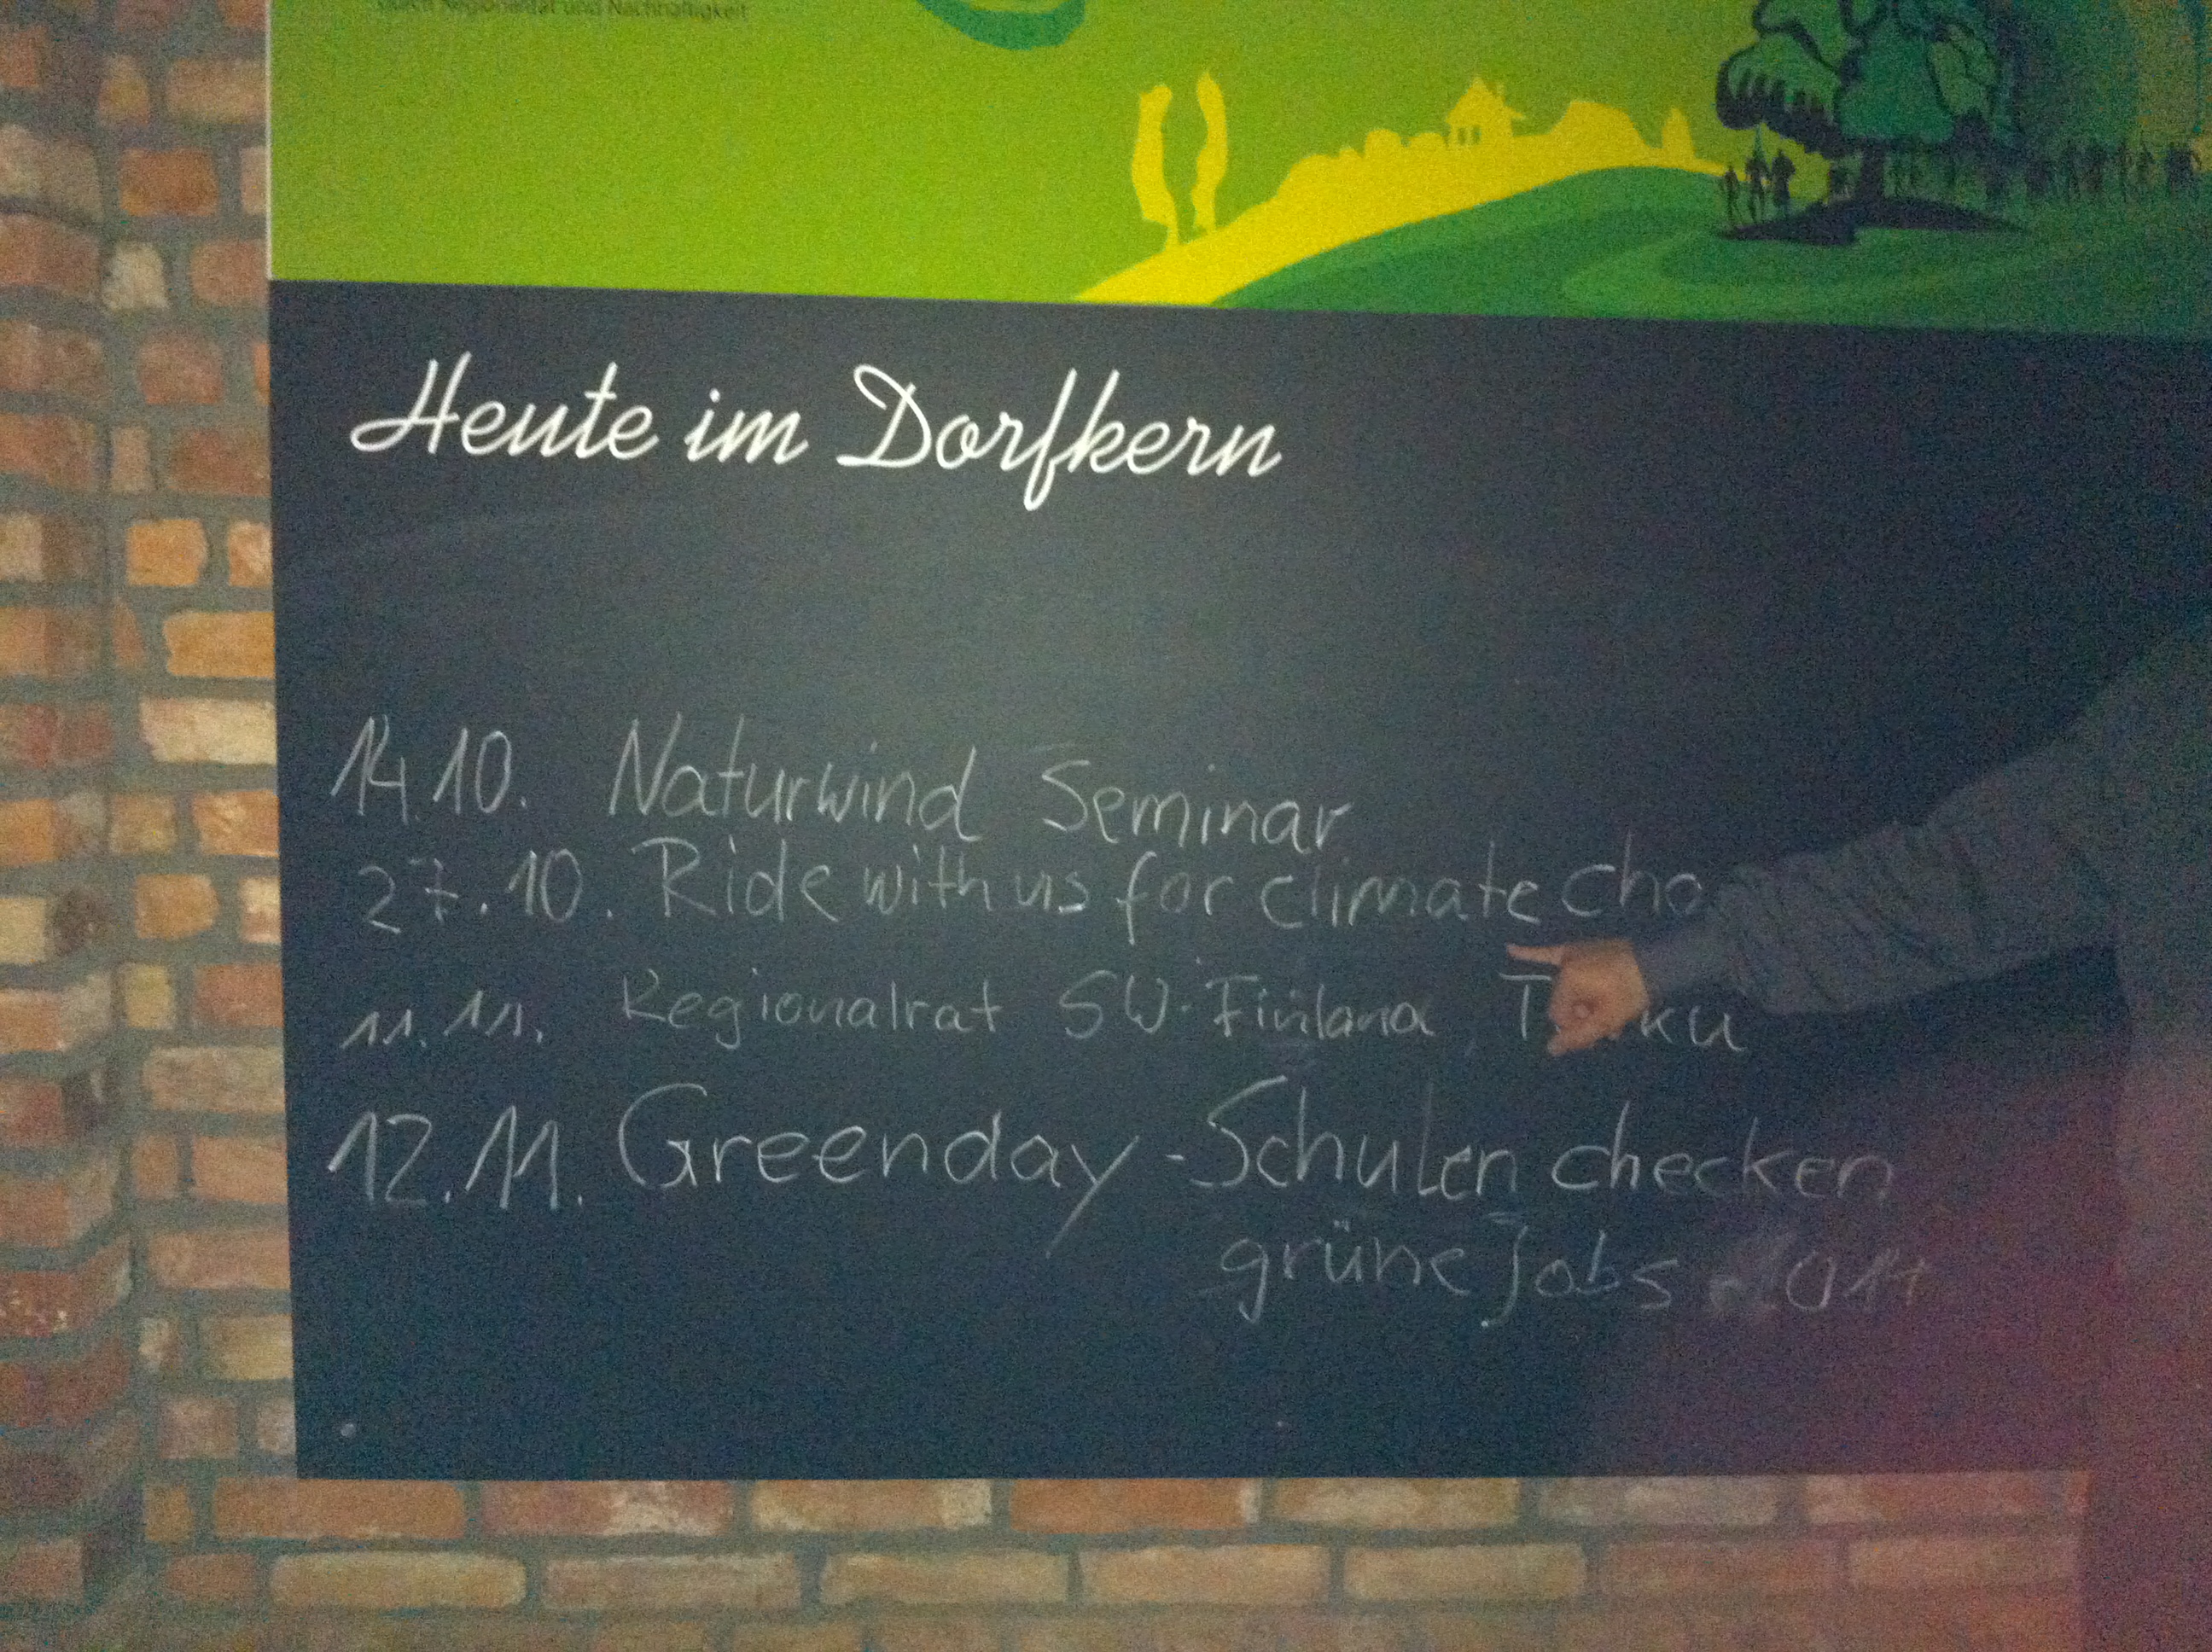 durch Regionalität und Nachhaltigkeit
Heute im Dorfkern
14.10. Naturwind Seminar
27.10. Ride with us for climate cha
11.11. Regionalrat SW-Finland,
12.11. Greenday - Schulen checken
grüne Jobs